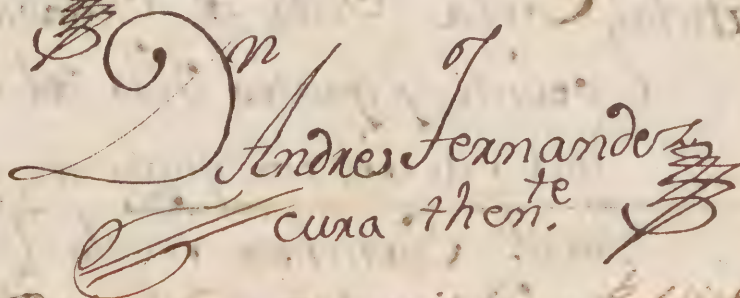 Dn Andres Fernandez
cura thente.